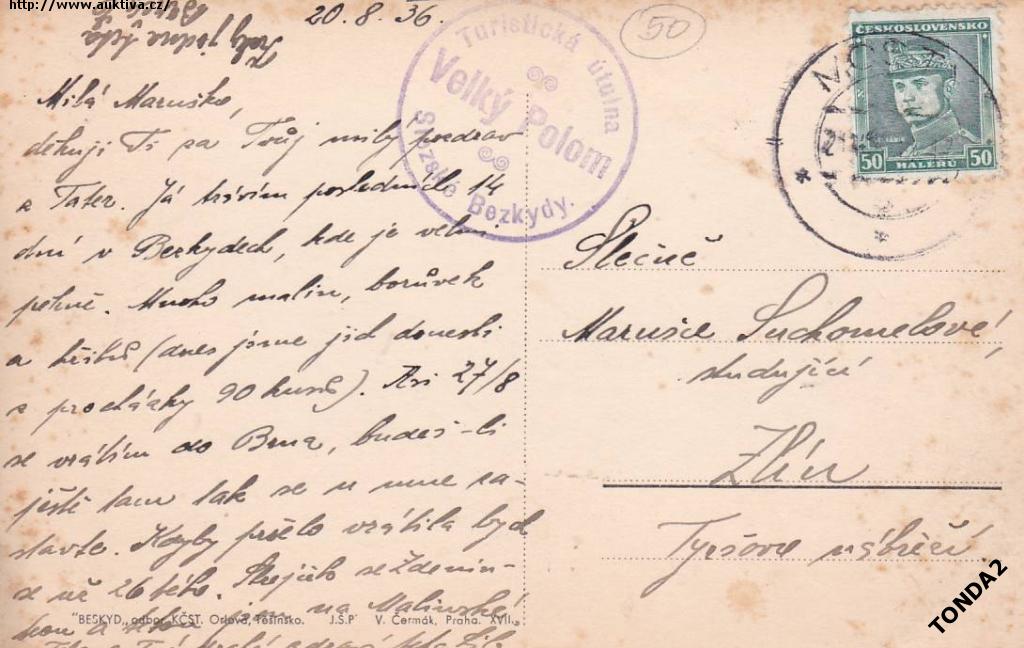 http://www.auktiva.cz/
20.8.36.
50
Turistická útulna
Velký Polom
Slezské Bezkydy.
ČESKOSLOVENSKO
50 HALÉŘŮ 50
Milá Maruško,
děkuji Ti za Tvůj milý pozdrav
z Tater. Já trávím posledních 14
dní v Bezkydech, kde je velmi
pěkně. Mnoho malin, borůvek
a hřibů (dnes jsme jich donesli
z procházky 90 kusů). Asi 27/8
se vrátím do Brna, budeš-li
ještě tam tak se u mne za-
stavte. Kdyby přišlo vrátila bych
se už 26tého. Strejčilo se Zdenin-
kou a jsou na Malinské
Slečně
Marušce Suchomelové,
studující
Zlín
Tyršovo nábřeží
"BESKYD„ odbor KČST. Orlová, Těšínsko. J.Š.P. V. Čermák, Praha. XVII.
TONDA2